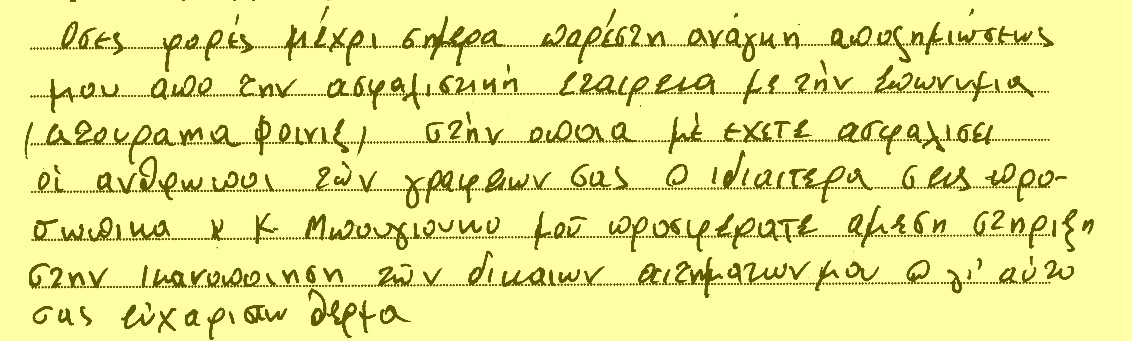 Οσες φορές μέχρι σημερα παρέστη ανάγκη αποζημιώσεως
μου απο την ασφαλιστική εταιρεια με τήν επωνυμια
(ατουραmα Φοινιξ) στήν οποια μέ εχετε ασφαλισει
οἱ ανθρωποι τῶν γραφειων σας ιδιαιτερα σεις προ-
σωπικα κ Κ. Μπουγιουκο μοῦ προσφερατε αμεση στηριξη
στην ικανοποιηση τῶν δικαιων αιτηματων μου γι' αὐτο
σας εὐχαριστω θερμα